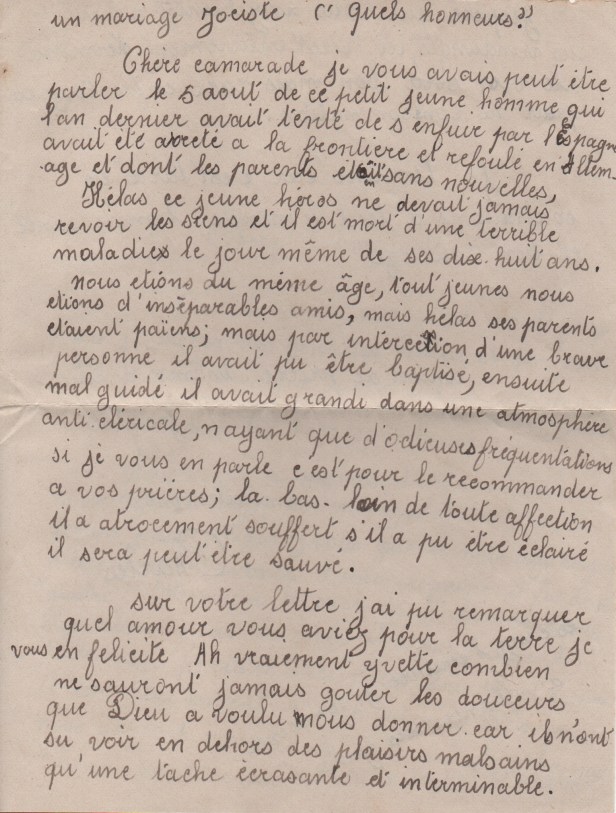 un mariage Jociste (" quels honneurs?")
Chère camarade je vous avais peut être
parler le 5 aout de ce petit jeune homme qui
l'an dernier avait tenté de s'enfuir par l'Espagne
avait été arreté a la frontière et refoulé en Allem-
age et dont les parents était sans nouvelles,
Hélas ce jeune héros ne devait jamais
revoir les siens et il est mort d'une terrible
maladies le jour même de ses dix-huit ans.
nous etions du même âge, tout jeunes nous
etions d'inséparables amis, mais hélas ses parents
etaient païens; mais par intercetion d'une brave
personne il avait pu être baptisé, ensuite
mal guidé il avait grandi dans une atmosphère
anti cléricale, n ayant que d'odieuses fréquentations
si je vous en parle c est pour le recommander
a vos prières; la-bas-loin de toute affection
il a atrocement souffert s'il a pu être éclairé
il sera peut être sauvé.
sur votre lettre j ai pu remarquer
quel amour vous aviez pour la terre je
vous en felicite Ah vraiement yvette combien
ne sauront jamais gouter les douceurs
que Dieu a voulu nous donner car ils n'ont
su voir en dehors des plaisirs malsains
qu'une tache écrasante et interminable.